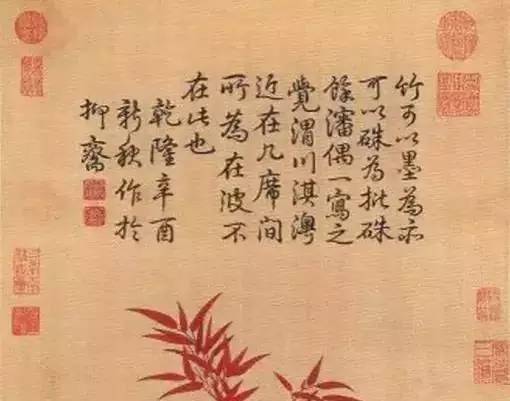 竹可以墨為亦
可以硃為批硃
餘瀋偶一寫之
覺渭川淇澳
近在几席間
所為在彼不
在此也
乾隆辛酉
新秋作於
抑齋